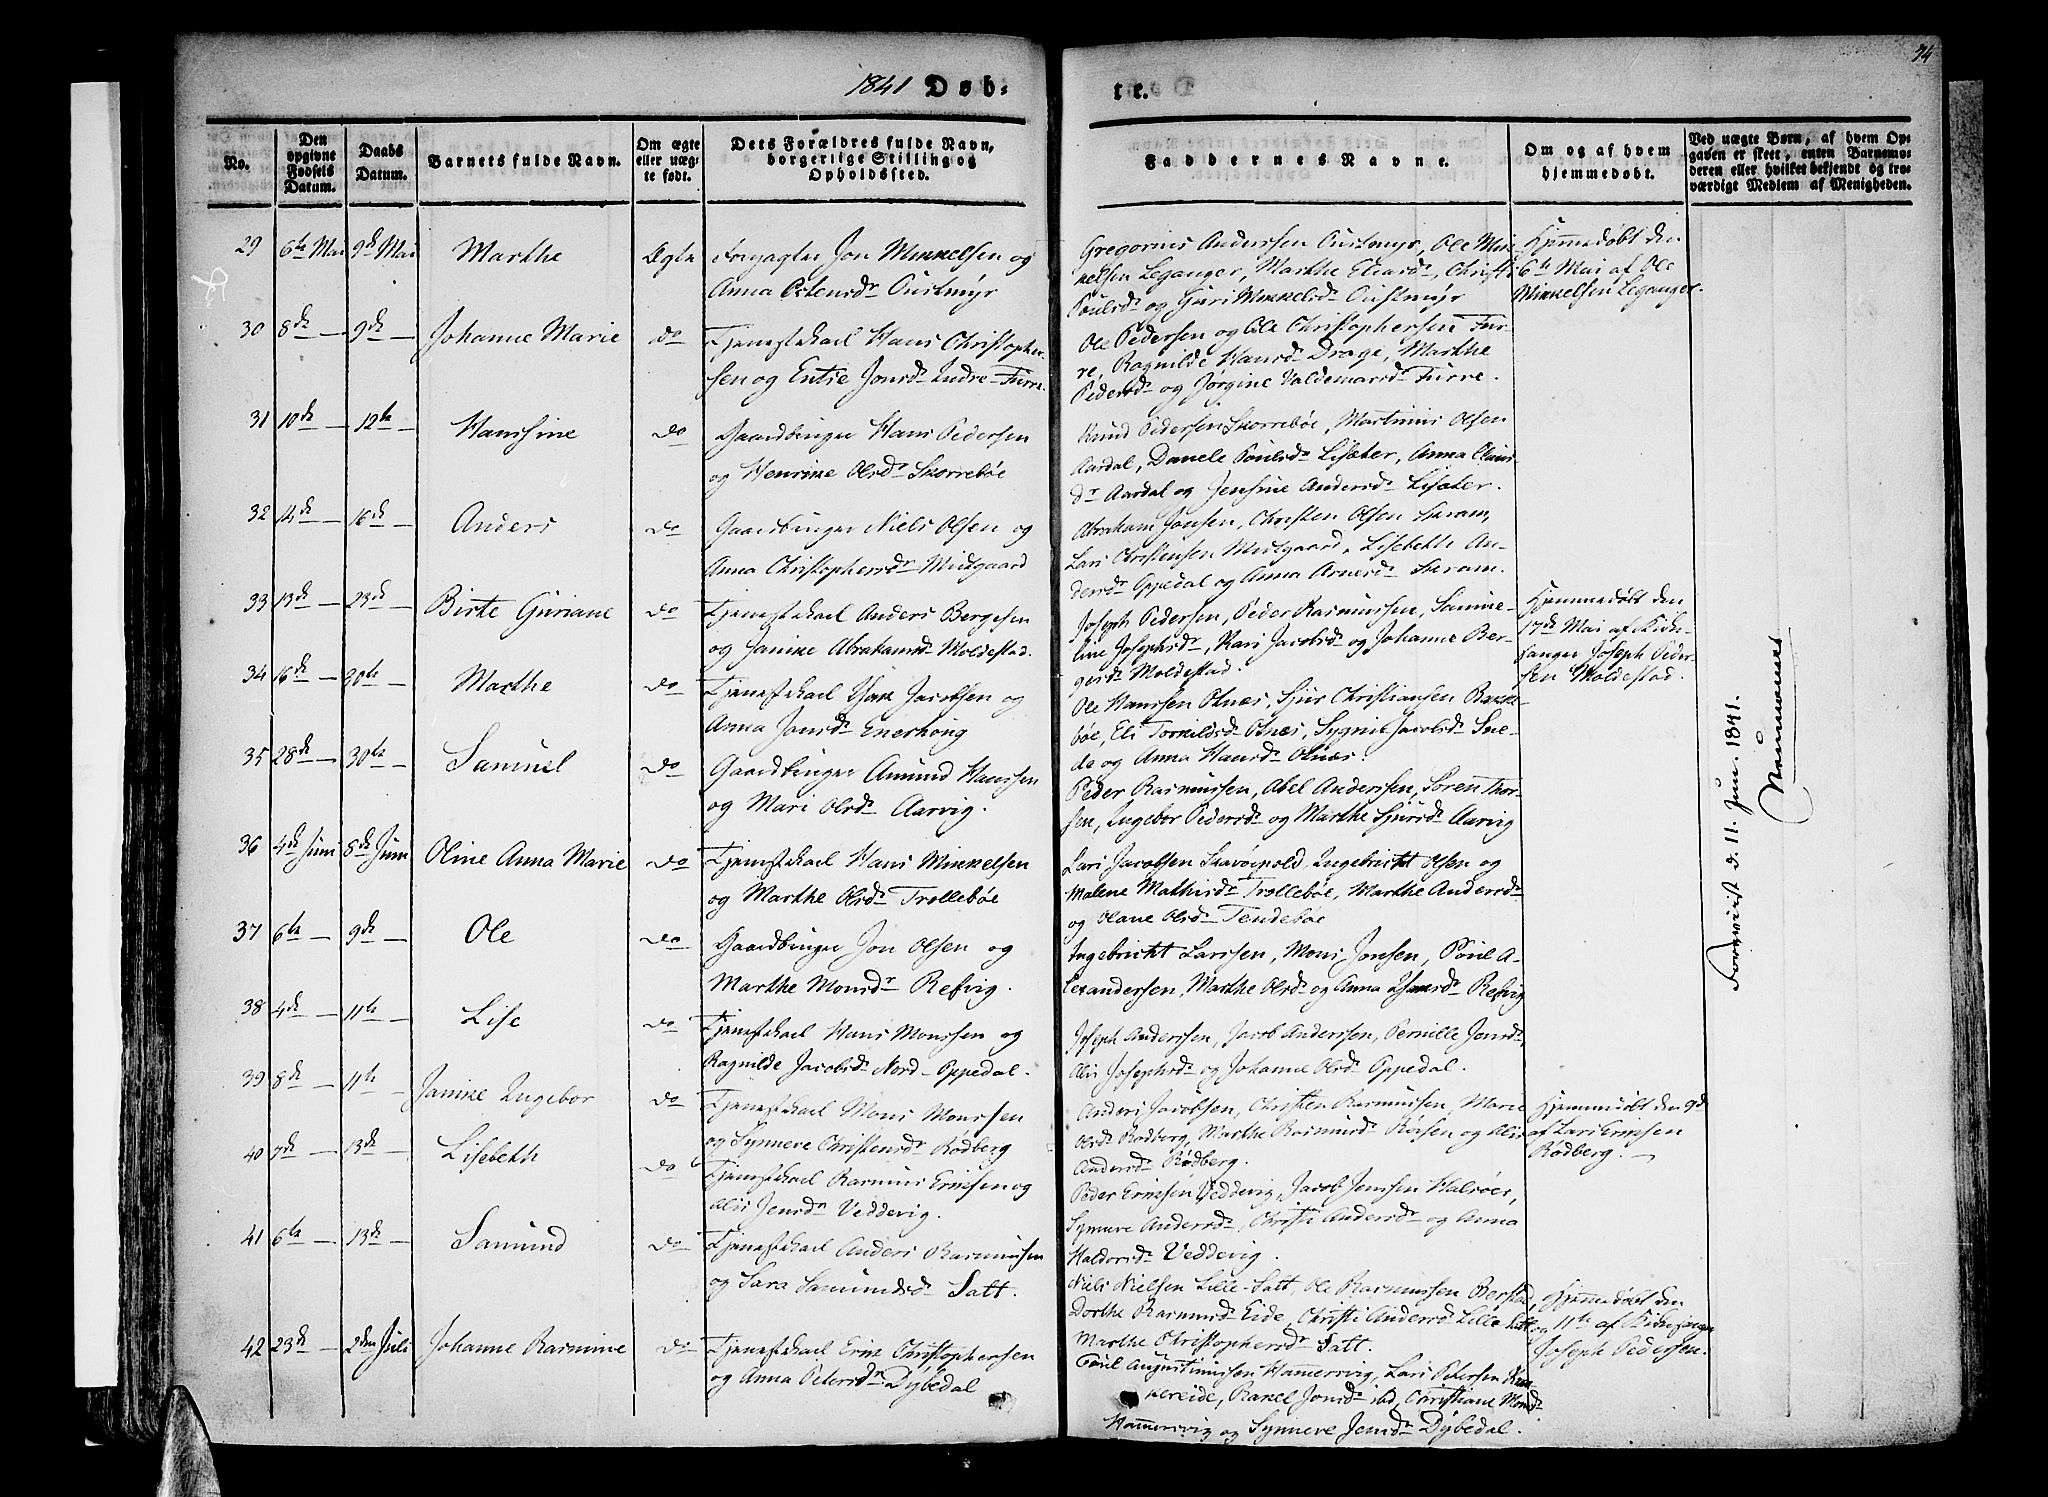 34
1841 Døb-
te.
No.
Den opgivne Fødsels Datum.
Daabs Datum.
Barnets fulde Navn.
Om ægte eller uægte født.
Dets Forældres fulde Navn, borgerlige Stilling og Opholdssted.
Faddernes Navne.
Om og af hvem hjemmedøbt.
Ved uægte Børn, af hvem Opgaven er skeet, enten Barnemoderen eller hvilket bekjendt og troværdigt Medlem af Menigheden.
29 6te Mai 9de Mai Marthe Ægte Jon Mikkelsen og
Anna Ostensdr
Gregorius Anderssen Ole Mik-
kelsen Leganger, Marthe
Poulsdr og Guri Mikkelsdr
Hjemmedøbt den
6te Mai af Ole
Mikkelsen Leganger.
30 8de — 9de — Johanne Marie do Tjenestekarl Hans Christopher-
sen og Jonsdr Indre-Furre
Ole Pedersen og Ole Christophersen Fur-
re, Ragnilde Hansdr Drage, Marthe
Pedersdr og Jørgine Valdemarsdr Furre.
31 10de — 12te — Hansine do Gaardbruger Hans Pedersen
og Henrikke Olsdr Skorrebøe
Knud Pedersen Skorrebøe, Martinus Olsen
Aardal, Danele Poulsdr Lisæter, Anna
dr Aardal og Jensine Andersdr Lisæter.
32 14de — 16de — Anders do Gaardbruger Niels Olsen og
Anna Christophersdr Midgaard
Abraham Jonsen, Christen Olsen
Lars Christensen Midgaard, Lisebeth An-
dersdr Oppedal og Anna Arnesdr
33 13de — 23de — Birte Guriane do Tjenestekarl Anders Bergesen
og Janike Abrahamsdr Moldestad.
Joseph Pedersen, Peder Rasmussen, Samine-
line Josephsdr, Kari Jacobsdr og Johanne Ber-
gesdr Moldestad.
Hjemmedøbt den
17de Mai af Kirke-
sanger Joseph Peder-
sen Moldestad.
34 16de — 30te — Marthe do Tjenestekarl Jacobsen og
Anna Jonsdr Enerhoug
Ole Hanssen Osnes, Sjur Christiansen
bøe, Eli Osnes, Jacobsdr
og Anna Hansdr Osnes.
35 28de — 30te — Samuel do Gaardbruger Amund Hanssen
og Mari Olsdr Aarvig.
Peder Rasmussen, Abel Anderssen, Søren Thor-
sen, Ingebor Pedersdr og Marthe Sjursdr Aarvig
36 4de Juni 8de Juni Oline Anna Marie do Tjenestekarl Hans Mikkelsen
og Marthe Olsdr Trollebøe
Lars Jacobsen Ingebricht Olsen og
Malene Mathisdr Trollebøe, Marthe Andersdr
og Olane Olsdr Tendebøe
37 6te — 9de — Ole do Gaardbruger Jon Olsen og
Marthe Monsdr Refvig.
Ingebricht Larssen, Mons Jonsen, Poul A-
lexandersen, Marthe Olsdr og Anna Refvig
38 4de — 11te — Lise do Tjenestekarl Hans Monssen og
Ragnilde Jacobsdr Nord-Oppedal.
Joseph Anderssen, Jacob Anderssen, Pernille Jensdr,
Alis Josephsdr og Johanne Olsdr Oppedal.
39 8de — 11te — Janike Ingebor do Tjenestekarl Mons Monssen
og Synneve Christensdr Rødberg
Anders Jacobsen, Christen Rasmussen, Marie
Olsdr Rødberg, Marthe Rasmusdr og Alis
Andersdr Rødberg.
Hjemmedøbt den 9de
af Lars Ericksen
Rødberg. —
40 7de — 13de — Lisebeth do Tjenestekarl Rasmus Ericksen og
Alis Jensdr Veddevig.
Peder Ericksen Veddevig, Jacob Jenssen
Synneve Andersdr, Christi Andersdr og Anna
Haldorsdr Veddevig.
41 6te — 13de — Samund do Tjenestekarl Anders Rasmussen
og Sara Samundsdr Satt.
Niels Nielsen Lille-Satt, Ole Rasmussen Berstad,
Dorthe Rasmusdr Eide, Christi Andersdr Lille Satt og
Marthe Christophersdr Satt.
Hjemmedøbt den
11te af Kirkesanger
Joseph Pedersen.
42 23de — 2den Juli Johanne Rasmine do Tjenestekarl Erik Christophersen
og Anna Petersdr Dybedal
Poul Augustinussen Hammersvig, Lars Petersen
Rakel Jonsdr ibd, Christiane Monsdr
Hammersvig og Synneve Jensdr Dybedal.
Foreviist d. 11. Jun. 1841.
Neumann